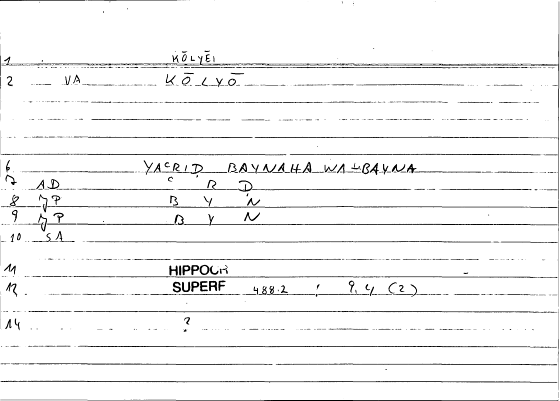 1 KŌLYĒI
2 VA KŌLYŌ
6 YAʿRIḌ BAYNAHA WA-BAYNA
7 AD ʿ R Ḍ
8 JP B Y N
9 JP B Y N
10 SA
11 HIPPOCR
12 SUPERF 488.2 ; 9.4 (2)
14 ?